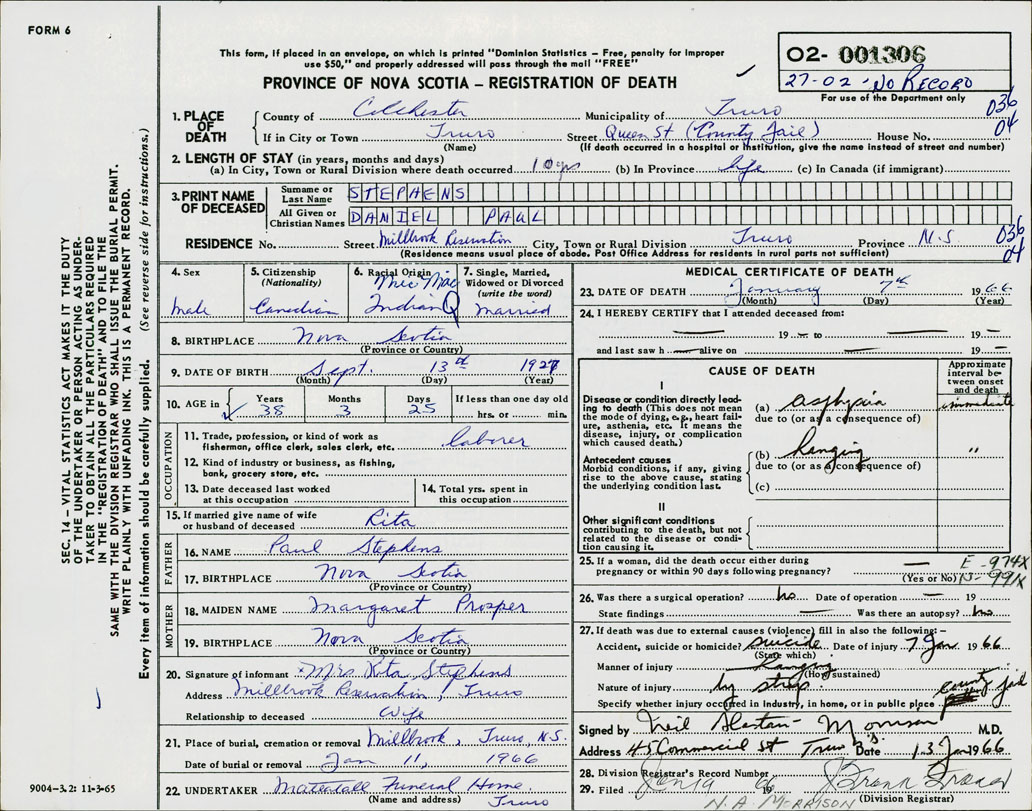 FORM 6
This form, if placed in an envelope, on which is printed "Dominion Statistics – Free, penalty for improper
use $50," and properly addressed will pass through the mail "FREE"
PROVINCE OF NOVA SCOTIA – REGISTRATION OF DEATH
02- 001306
27-02 - NO RECORD
For use of the Department only
SEC. 14 – VITAL STATISTICS ACT MAKES IT THE DUTY
OF THE UNDERTAKER OR PERSON ACTING AS UNDER-
TAKER TO OBTAIN ALL THE PARTICULARS REQUIRED
IN THE "REGISTRATION OF DEATH" AND TO FILE THE
SAME WITH THE DIVISION REGISTRAR WHO SHALL ISSUE THE BURIAL PERMIT.
WRITE PLAINLY WITH UNFADING INK. THIS IS A PERMANENT RECORD.
Every item of information should be carefully supplied. (See reverse side for instructions.)
1. PLACE OF DEATH
County of Colchester Municipality of Truro 036
If in City or Town Truro Street Queen St (County Jail) House No. 04
(Name) (If death occurred in a hospital or institution, give the name instead of street and number)
2. LENGTH OF STAY (in years, months and days)
(a) In City, Town or Rural Division where death occurred 10 yrs (b) In Province life (c) In Canada (if immigrant)
3. PRINT NAME OF DECEASED
Surname or Last Name STEPHENS
All Given or Christian Names DANIEL PAUL
RESIDENCE No. Street Millbrook Reservation City, Town or Rural Division Truro Province N.S. 036 04
(Residence means usual place of abode. Post Office Address for residents in rural parts not sufficient)
4. Sex Male
5. Citizenship (Nationality) Canadian
6. Racial Origin Mic Mac Indian
7. Single, Married, Widowed or Divorced (write the word) Married
8. BIRTHPLACE Nova Scotia
(Province or Country)
9. DATE OF BIRTH Sept. 13th 1927
(Month) (Day) (Year)
10. AGE in Years 38 Months 3 Days 25 If less than one day old hrs. or min.
OCCUPATION
11. Trade, profession, or kind of work as fisherman, office clerk, sales clerk, etc. laborer
12. Kind of industry or business, as fishing, bank, grocery store, etc.
13. Date deceased last worked at this occupation
14. Total yrs. spent in this occupation
15. If married give name of wife or husband of deceased Rita
FATHER
16. NAME Paul Stephens
17. BIRTHPLACE Nova Scotia
(Province or Country)
MOTHER
18. MAIDEN NAME Margaret Prosper
19. BIRTHPLACE Nova Scotia
(Province or Country)
20. Signature of informant Mrs Rita Stephens
Address Millbrook Reservation, Truro
Relationship to deceased Wife
21. Place of burial, cremation or removal Millbrook, Truro, N.S.
Date of burial or removal Jan 11, 1966
22. UNDERTAKER Funeral Home
(Name and address) Truro
9004-3.2: 11-3-65
MEDICAL CERTIFICATE OF DEATH
23. DATE OF DEATH January 7th 1966
(Month) (Day) (Year)
24. I HEREBY CERTIFY that I attended deceased from:
19 — to — 19 —
and last saw h — alive on — 19 —
CAUSE OF DEATH
Approximate interval between onset and death
I
Disease or condition directly lead-
ing to death (This does not mean
the mode of dying, e.g., heart fail-
ure, asthenia, etc. It means the
disease, injury, or complication
which caused death.)
(a) asphyxia immediate
due to (or as a consequence of)
Antecedent causes
Morbid conditions, if any, giving
rise to the above cause, stating
the underlying condition last.
(b) hanging "
due to (or as a consequence of)
(c)
II
Other significant conditions
contributing to the death, but not
related to the disease or condi-
tion causing it.
25. If a woman, did the death occur either during
pregnancy or within 90 days following pregnancy? — (Yes or No)
E-974X
N-991X
26. Was there a surgical operation? no Date of operation — 19
State findings — Was there an autopsy? no
27. If death was due to external causes (violence) fill in also the following:–
Accident, suicide or homicide? suicide Date of injury 7 Jan. 1966
(State which)
Manner of injury hanging
(How sustained)
Nature of injury by strap.
Specify whether injury occurred in industry, in home, or in public place county jail
Signed by Neil Alastair Morrison M.D.
Address 45 Commercial St Truro Date 13 Jan 1966
28. Division Registrar's Record Number
29. Filed Jan 19 66
(Division Registrar)
N. A. MORRISON